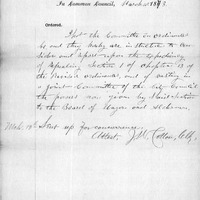 In Common Council, March 10 1873.
Ordered,
That the Committee on Ordinances
be and they hereby are instructed to con-
sider and report upon the expediency
of repealing Section 1 of Chapter 13 of
the Revised Ordinances, and of vesting in
a joint Committee of the City Council
the powers now given by said section
to the Board of Mayor and Aldermen.
Sent up for concurrence.
Attest.